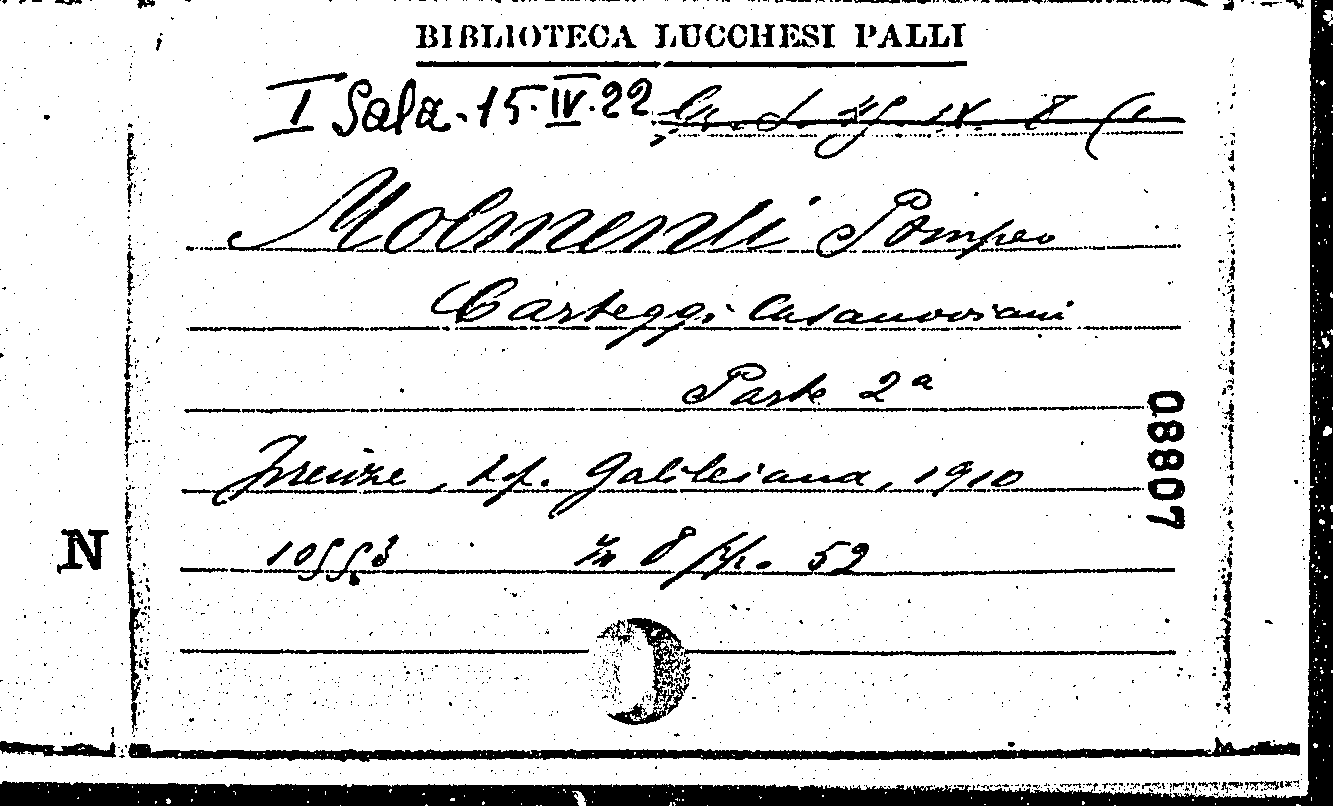 BIBLIOTECA LUCCHESI PALLI
I Sala. 15. IV. 22
Molmenti Pompeo
Carteggi Casanoviani
Parte 2a
08807
Firenze, tip. Galileiana, 1910
N
in 8 pp. 52